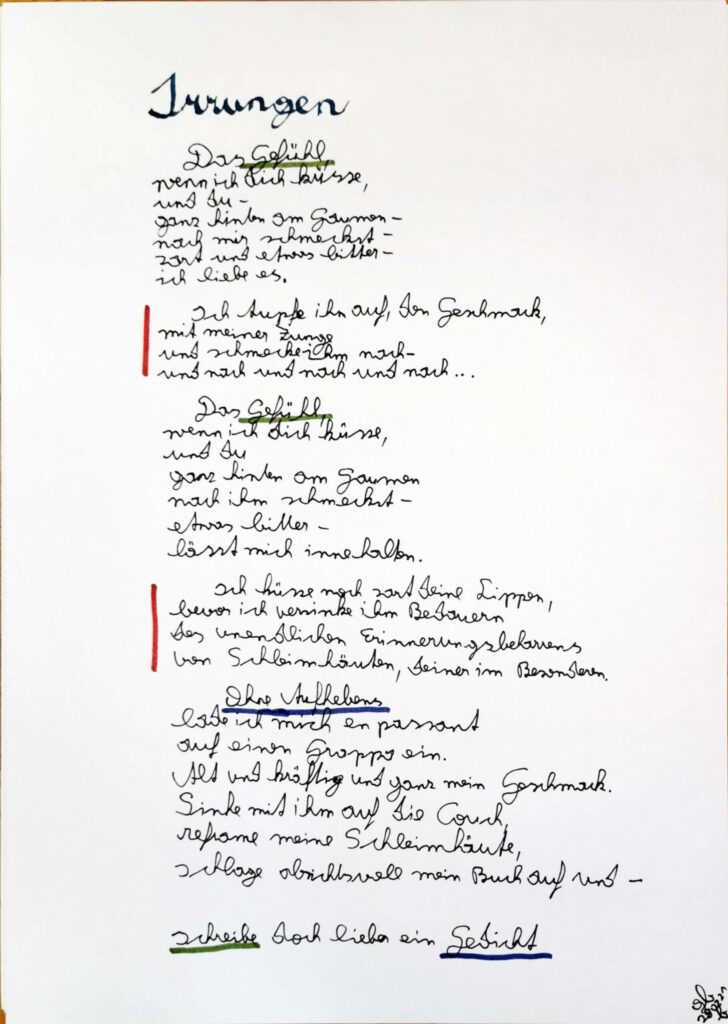 Irrungen
Das Gefühl,
wenn ich dich küsse,
und du –
ganz hinten am Gaumen –
nach mir schmeckst –
zart und etwas bitter –
ich liebe es.
Ich tupfe ihn auf, den Geschmack,
mit meiner Zunge
und schmecke ihm nach –
und nach und nach und nach...
Das Gefühl,
wenn ich dich küsse,
und du
ganz hinten am Gaumen
nach ihm schmeckst –
etwas bitter –
lässt mich innehalten.
Ich küsse noch zart deine Lippen,
bevor ich versinke im Bedauern
des unendlichen Erinnerungsbeharrens
von Schleimhäuten, deiner im Besonderen.
Ohne Aufhebens
lade ich mich en passant
auf einen Grappa ein.
Alt und kräftig und ganz mein Geschmack.
Sinke mit ihm auf die Couch,
reframe meine Schleimhäute,
schlage absichtsvoll mein Buch auf und –
schreibe doch lieber ein Gedicht